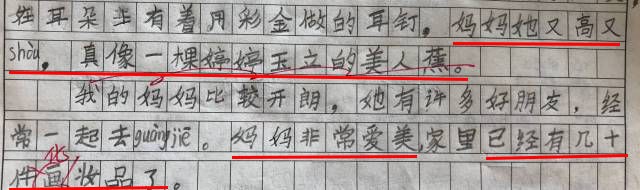 在耳朵上有着用彩金做的耳钉。妈妈她又高又
shòu，真像一棵婷婷玉立的美人蕉。
我的妈妈比较开朗，她有许多好朋友，经
常一起去guàngjiē。妈妈非常爱美，家里已经有几十
化
件画妆品了。